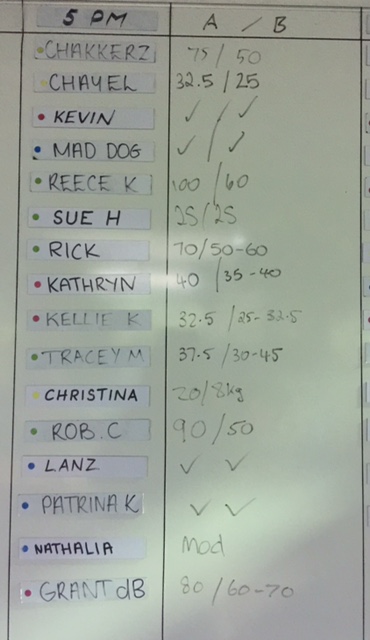 5 PM A / B
CHAKKERZ 75 / 50
CHAYEL 32.5 / 25
KEVIN ✓ / ✓
MAD DOG ✓ / ✓
REECE K 100 / 60
SUE H 25/25
RICK 70/50-60
KATHRYN 40 / 35-40
KELLIE K 32.5 / 25-32.5
TRACEY M 37.5 / 30-45
CHRISTINA 20/8kg
ROB. C 90/50
LANZ ✓ ✓
PATRINA K ✓ ✓
NATHALIA Mod
GRANT dB 80 / 60-70